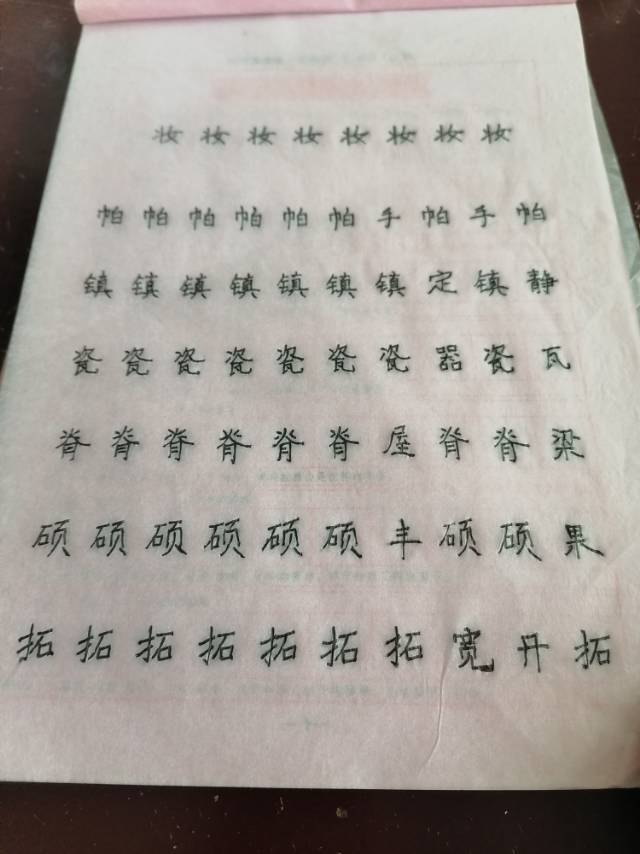 妆妆妆妆妆妆妆妆
帕帕帕帕帕帕手帕手帕
镇镇镇镇镇镇镇定镇静
瓷瓷瓷瓷瓷瓷瓷器瓷瓦
脊脊脊脊脊脊屋脊脊梁
硕硕硕硕硕硕丰硕硕果
拓拓拓拓拓拓拓宽开拓